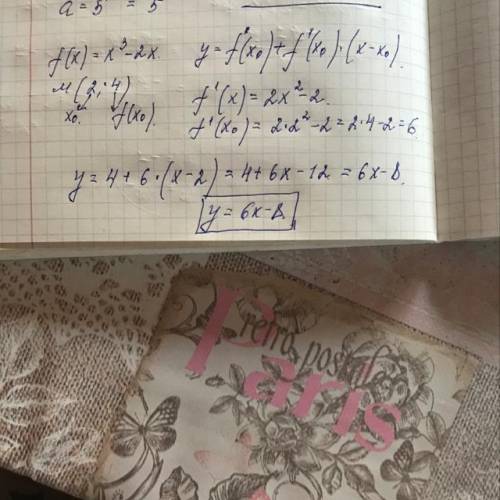 a = 5 = 5
f(x) = x³ - 2x.
y = f'(x₀) + f'(x₀)·(x - x₀).
M(2; 4)
x₀ f(x₀).
f'(x) = 2x² - 2.
f'(x₀) = 2·2² - 2 = 2·4 - 2 = 6.
y = 4 + 6·(x - 2) = 4 + 6x - 12 = 6x - 8.
y = 6x - 8.
retro postal
Paris